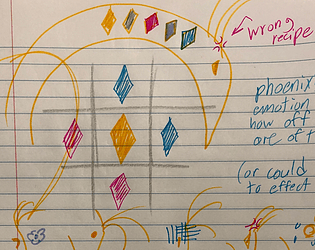 wrong
recipe
phoenix
emotion
how off
are of t
(or could
to effect